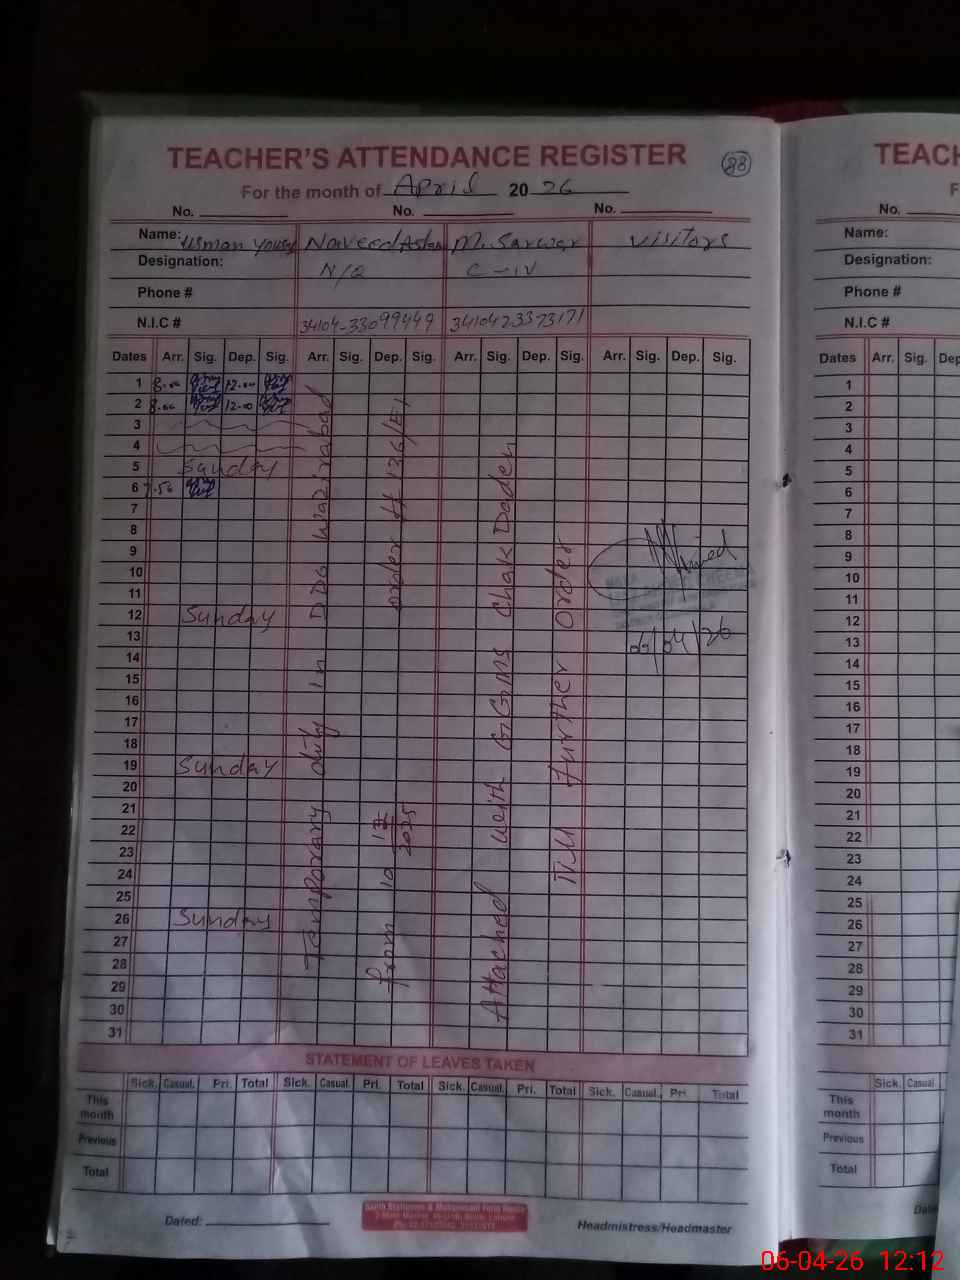 TEACHER'S ATTENDANCE REGISTER 83
For the month of April 2026
No. No. No.
Name: Usman Yousaf Naveed Aslam M. Sarwar Visitors
Designation: N/Q C-IV
Phone #
N.I.C # 34104-33099449 3410423373171
Dates Arr. Sig. Dep. Sig. Arr. Sig. Dep. Sig. Arr. Sig. Dep. Sig. Arr. Sig. Dep. Sig.
1 8.00 12.00
2 8.00 12.00
3
4
5 Sunday
6 7.50
7
8
9
10
11
12 Sunday
13
14
15
16
17
18
19 Sunday
20
21
22
23
24
25
26 Sunday
27
28
29
30
31
Temporary duty in DDO Wazirabad
from 10 2025 order # 136/E1
Attached with GGMS Chak Daden
Till further order
06/04/26
STATEMENT OF LEAVES TAKEN
Sick. Casual. Pri. Total Sick. Casual. Pri. Total Sick. Casual. Pri. Total Sick. Casual. Pri. Total
This month
Previous
Total
Dated:
Headmistress/Headmaster
TEACH
F
No.
Name:
Designation:
Phone #
N.I.C #
Dates Arr. Sig. Dep
1
2
3
4
5
6
7
8
9
10
11
12
13
14
15
16
17
18
19
20
21
22
23
24
25
26
27
28
29
30
31
Sick. Casual
This month
Previous
Total
06-04-26 12:12